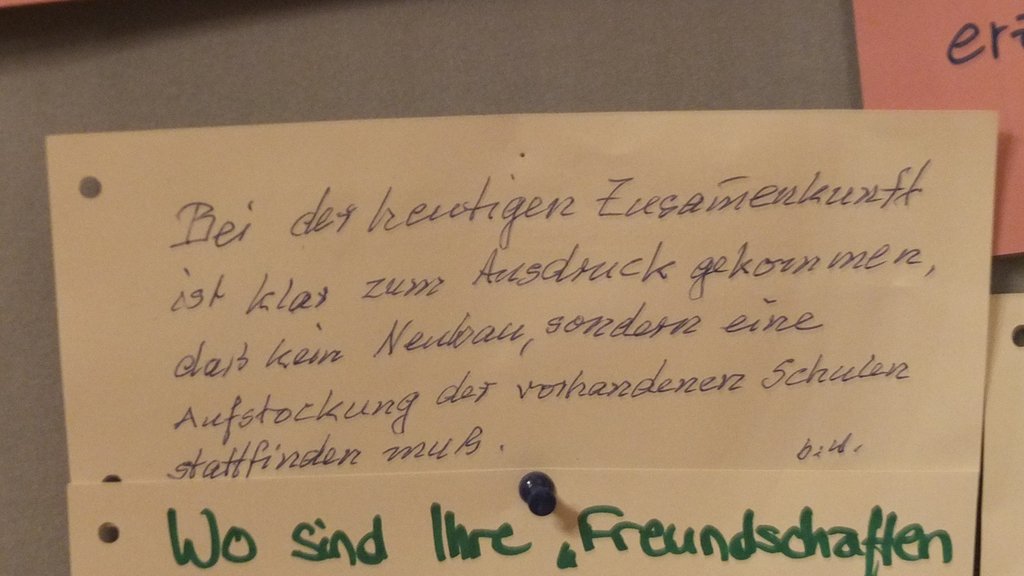 erz
Bei der heutigen Zusam̄enkunft
ist klar zum Ausdruck gekommen,
daß kein Neubau, sondern eine
Aufstockung der vorhandenen Schulen
stattfinden muß.
b.w.
Wo sind Ihre „Freundschaften